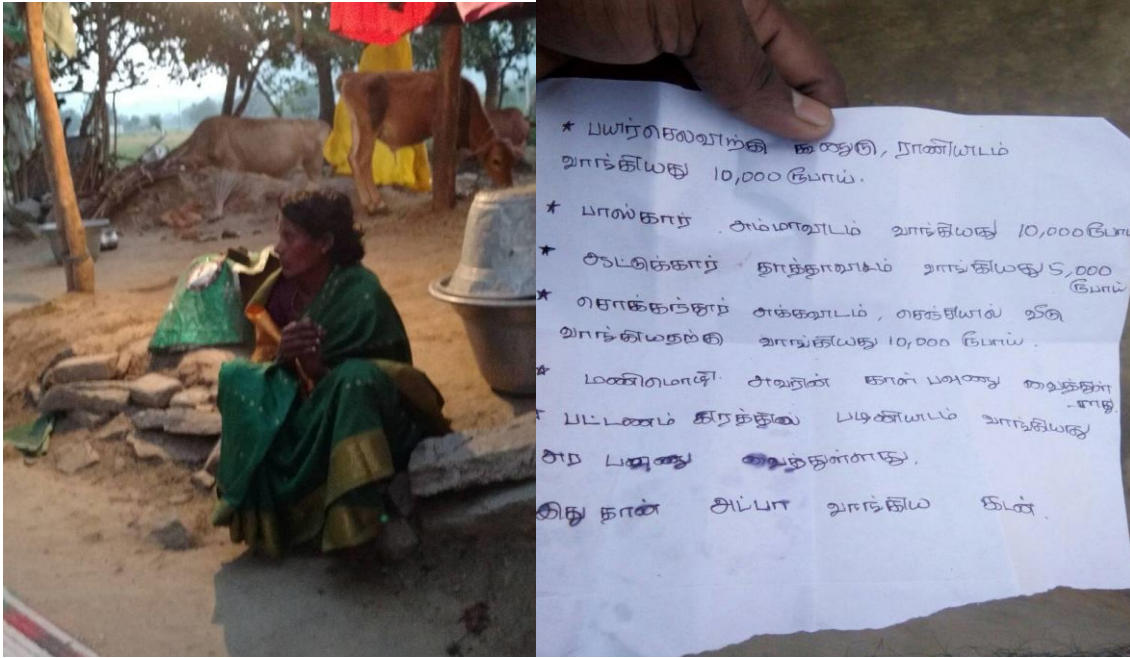 * பயிர்செலவிற்கு கூலைரு, ராணியிடம்
வாங்கியது 10,000 ரூபாய்.
* பாஸ்கார் அம்மாவிடம் வாங்கியது 10,000 ரூபாய்
* ஆட்டுக்கார் தாத்தாவிடம் வாங்கியது 5,000
ரூபாய்
* சொக்கந்தூர் அக்காவிடம், செந்தியால் வீடு
வாங்கியதற்கு வாங்கியது 10,000 ரூபாய்.
* மணிமொழி அவரின் கால் பவுணு வைத்துள்
-ளாது.
* பட்டணம் வாங்கியது
அர பவுணு வைத்துள்ளாது.
இது தான் அப்பா வாங்கிய கடன்.